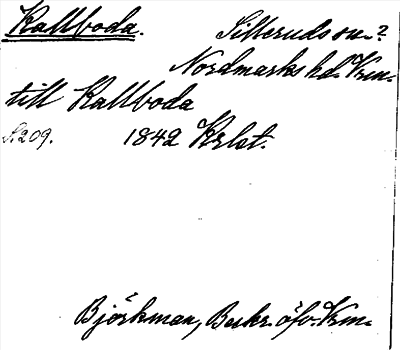 Kallboda. Silleruds sn.?
Nordmarks hd. Vrm.
till Kallboda
S. 209. 1842 Krlst.
Björkman, Beskr. öfv. Vrm.